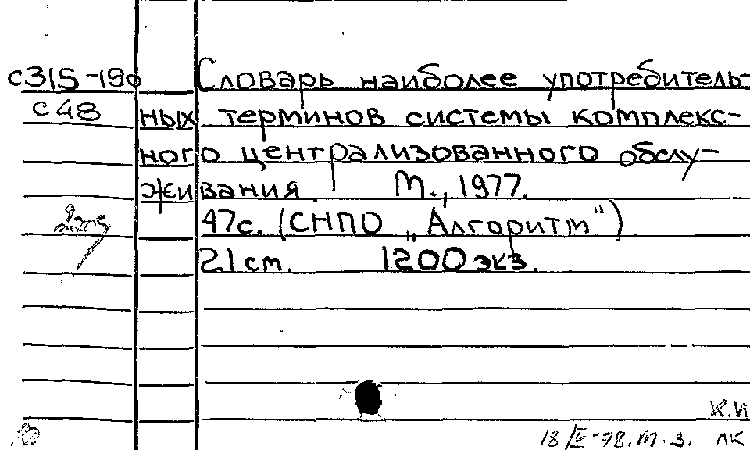 с315-190 Словарь наиболее употребитель-
с48 ных терминов системы комплекс-
ного централизованного обслу-
живания. М., 1977.
47с. (СНПО „Алгоритм")
21 см. 1200 экз.
К.И
18/IV-78. м.з. лк